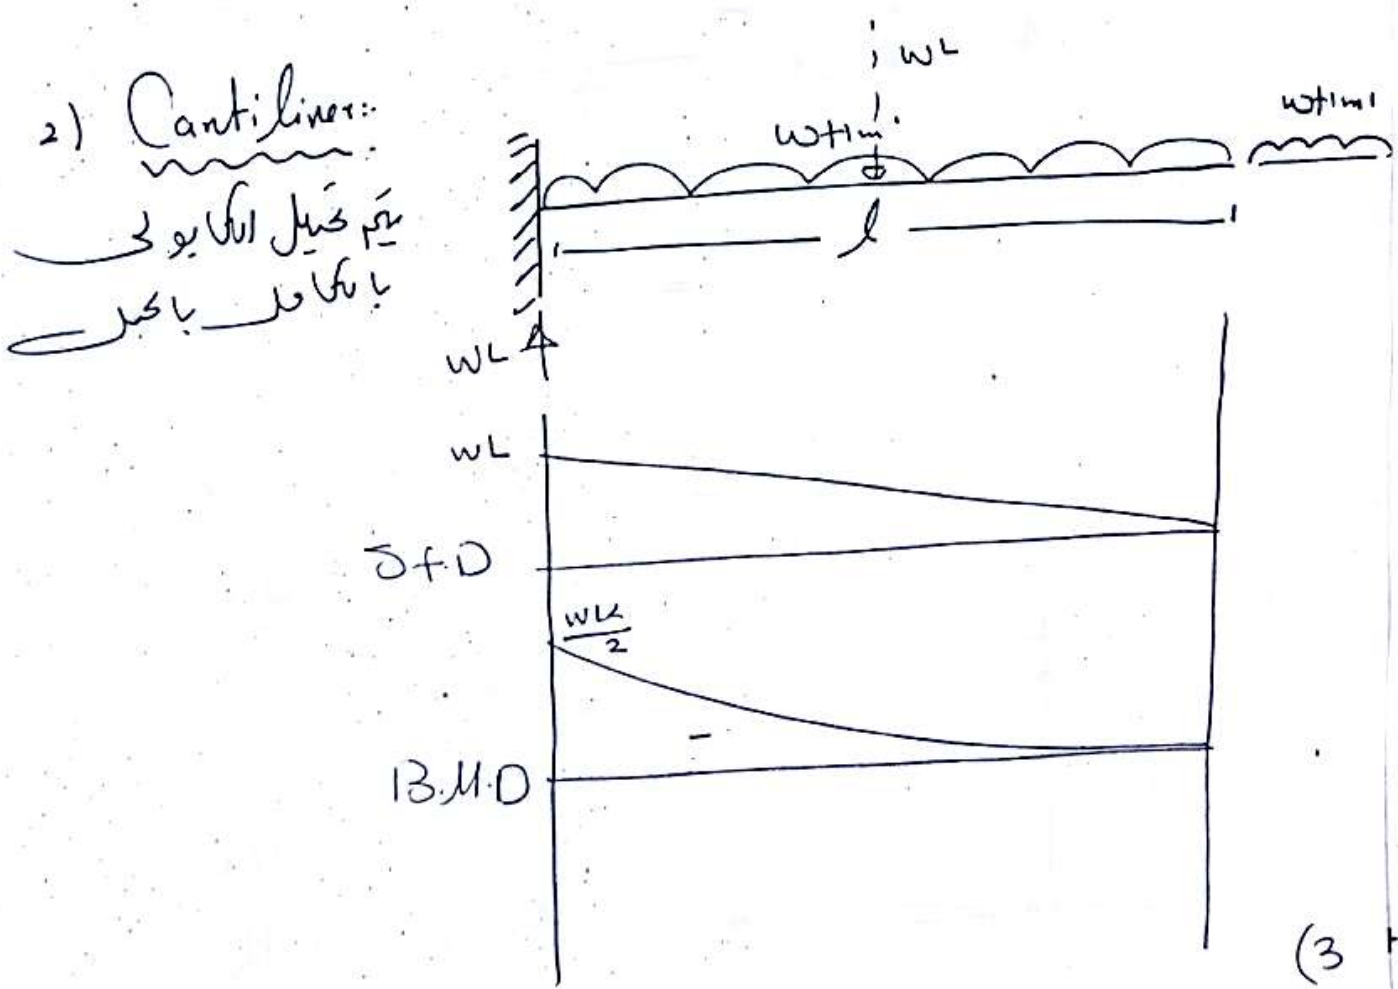 2) Cantiliver:
يتم تحميل الكابولى
بالكامل بالحمل
WL
w t/m'
w t/m'
l
WL
WL
S.f.D
WL²/2
-
B.M.D
(3